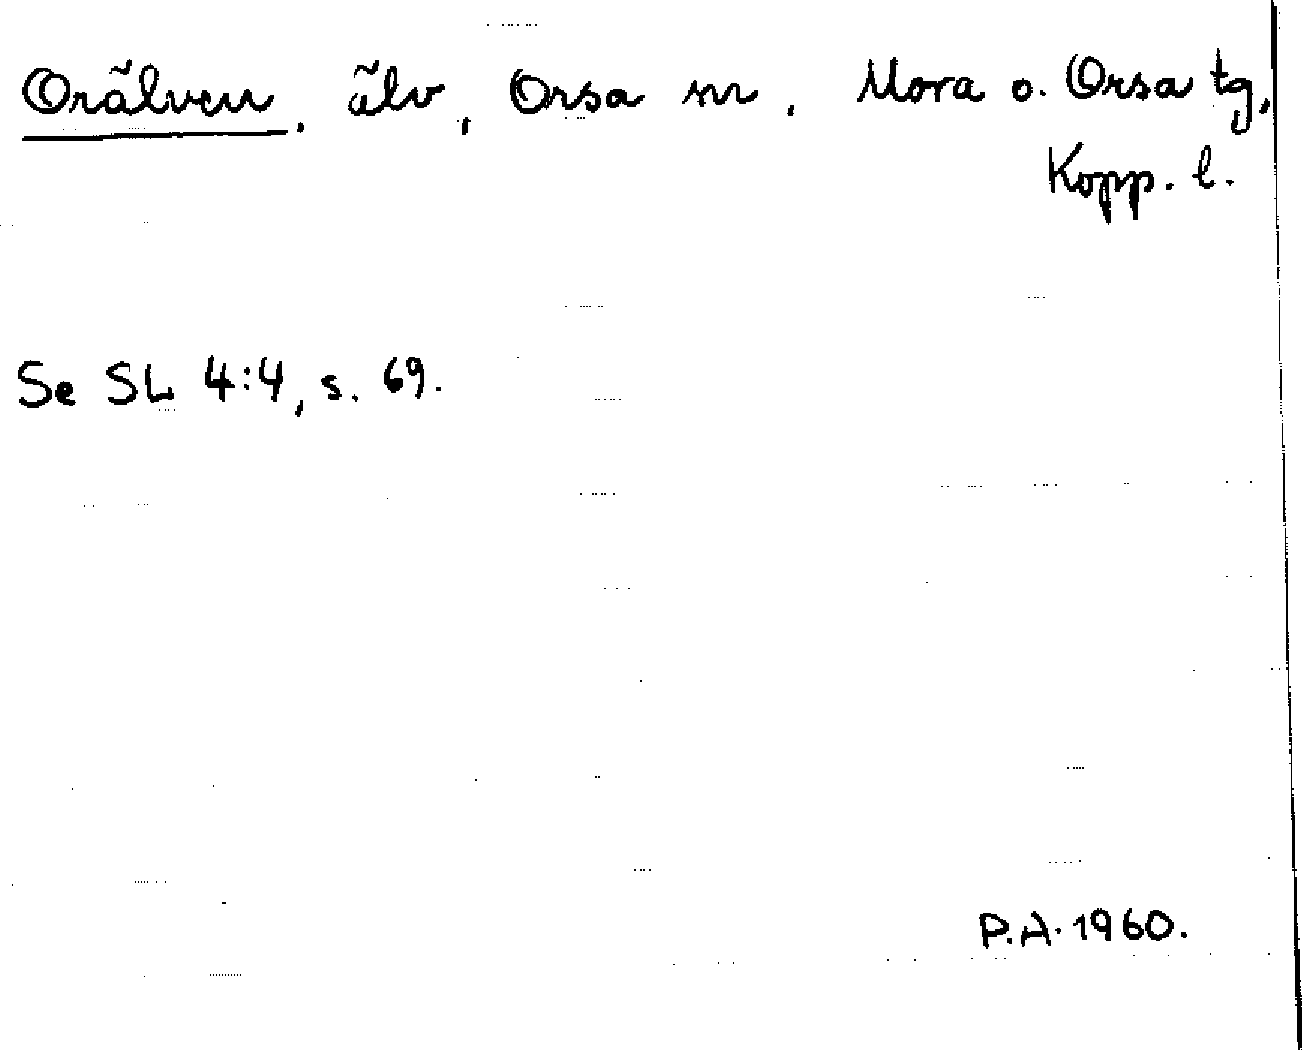 Orälven, älv, Orsa sn, Mora o. Orsa tg,
Kopp. l.
Se SL 4:4, s. 69.
P.A. 1960.